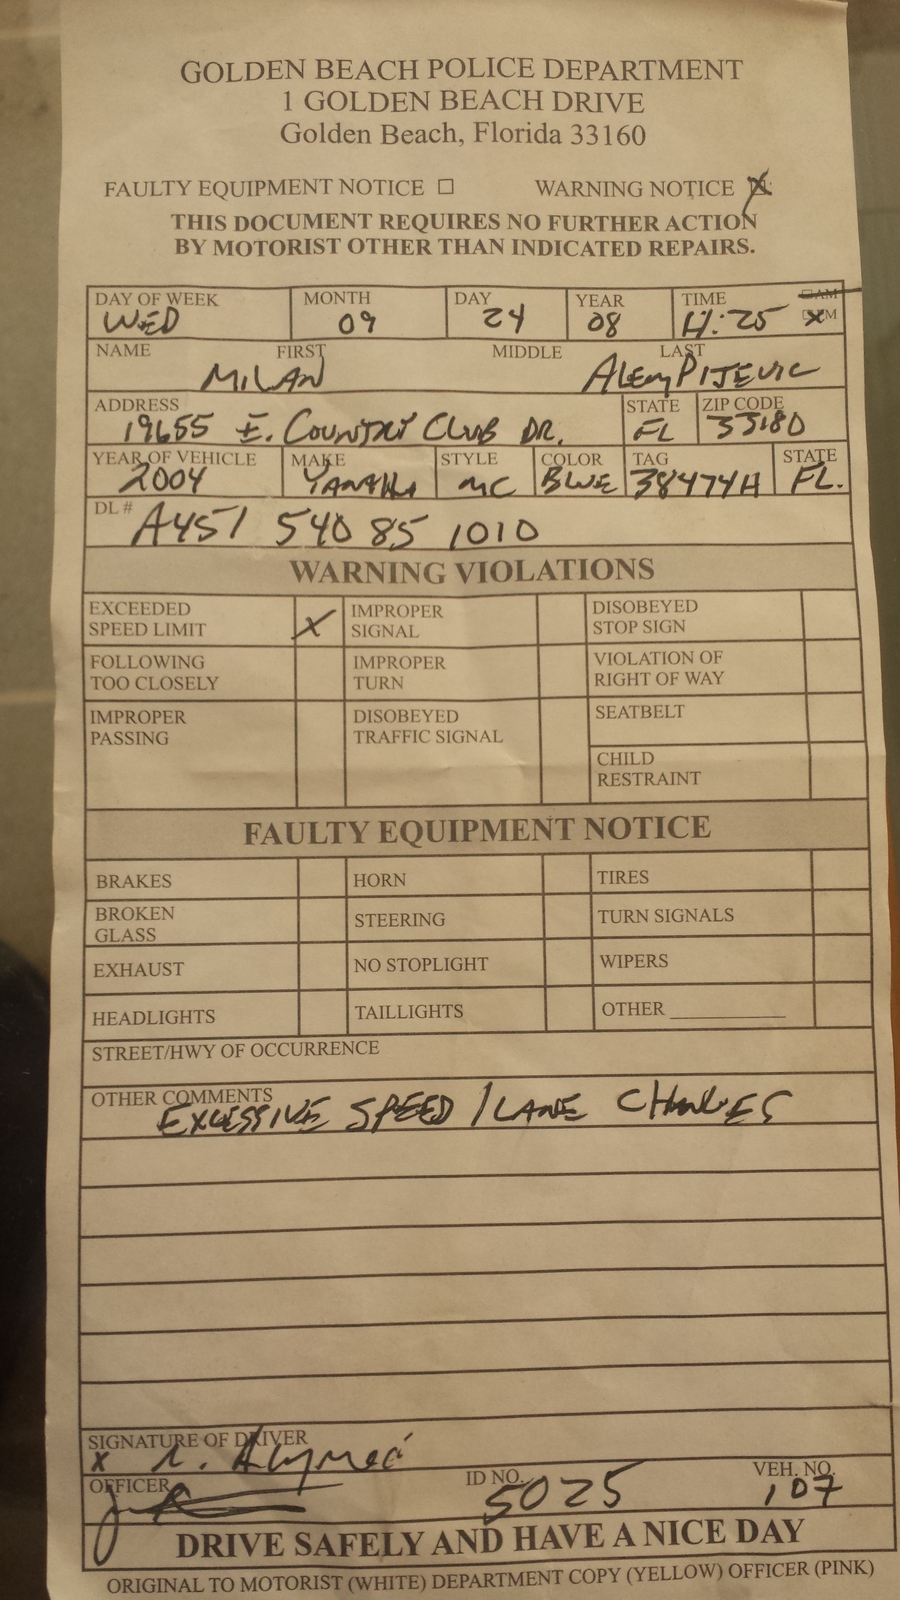 GOLDEN BEACH POLICE DEPARTMENT
1 GOLDEN BEACH DRIVE
Golden Beach, Florida 33160
FAULTY EQUIPMENT NOTICE ☐ WARNING NOTICE ☒
THIS DOCUMENT REQUIRES NO FURTHER ACTION
BY MOTORIST OTHER THAN INDICATED REPAIRS.
DAY OF WEEK MONTH DAY YEAR TIME AM
WED 09 24 08 11:25 PM
NAME FIRST MIDDLE LAST
MILAN
ADDRESS STATE ZIP CODE
19655 E. COUNTRY CLUB DR. FL 33180
YEAR OF VEHICLE MAKE STYLE COLOR TAG STATE
2004 YAMAHA MC BLUE 38474H FL.
DL # A451 540 85 1010
WARNING VIOLATIONS
EXCEEDED SPEED LIMIT X IMPROPER SIGNAL DISOBEYED STOP SIGN
FOLLOWING TOO CLOSELY IMPROPER TURN VIOLATION OF RIGHT OF WAY
IMPROPER PASSING DISOBEYED TRAFFIC SIGNAL SEATBELT
CHILD RESTRAINT
FAULTY EQUIPMENT NOTICE
BRAKES HORN TIRES
BROKEN GLASS STEERING TURN SIGNALS
EXHAUST NO STOPLIGHT WIPERS
HEADLIGHTS TAILLIGHTS OTHER ____________
STREET/HWY OF OCCURRENCE
OTHER COMMENTS
EXCESSIVE SPEED / LANE CHANGES
SIGNATURE OF DRIVER
x
OFFICER ID NO. VEH. NO.
5025 107
DRIVE SAFELY AND HAVE A NICE DAY
ORIGINAL TO MOTORIST (WHITE) DEPARTMENT COPY (YELLOW) OFFICER (PINK)